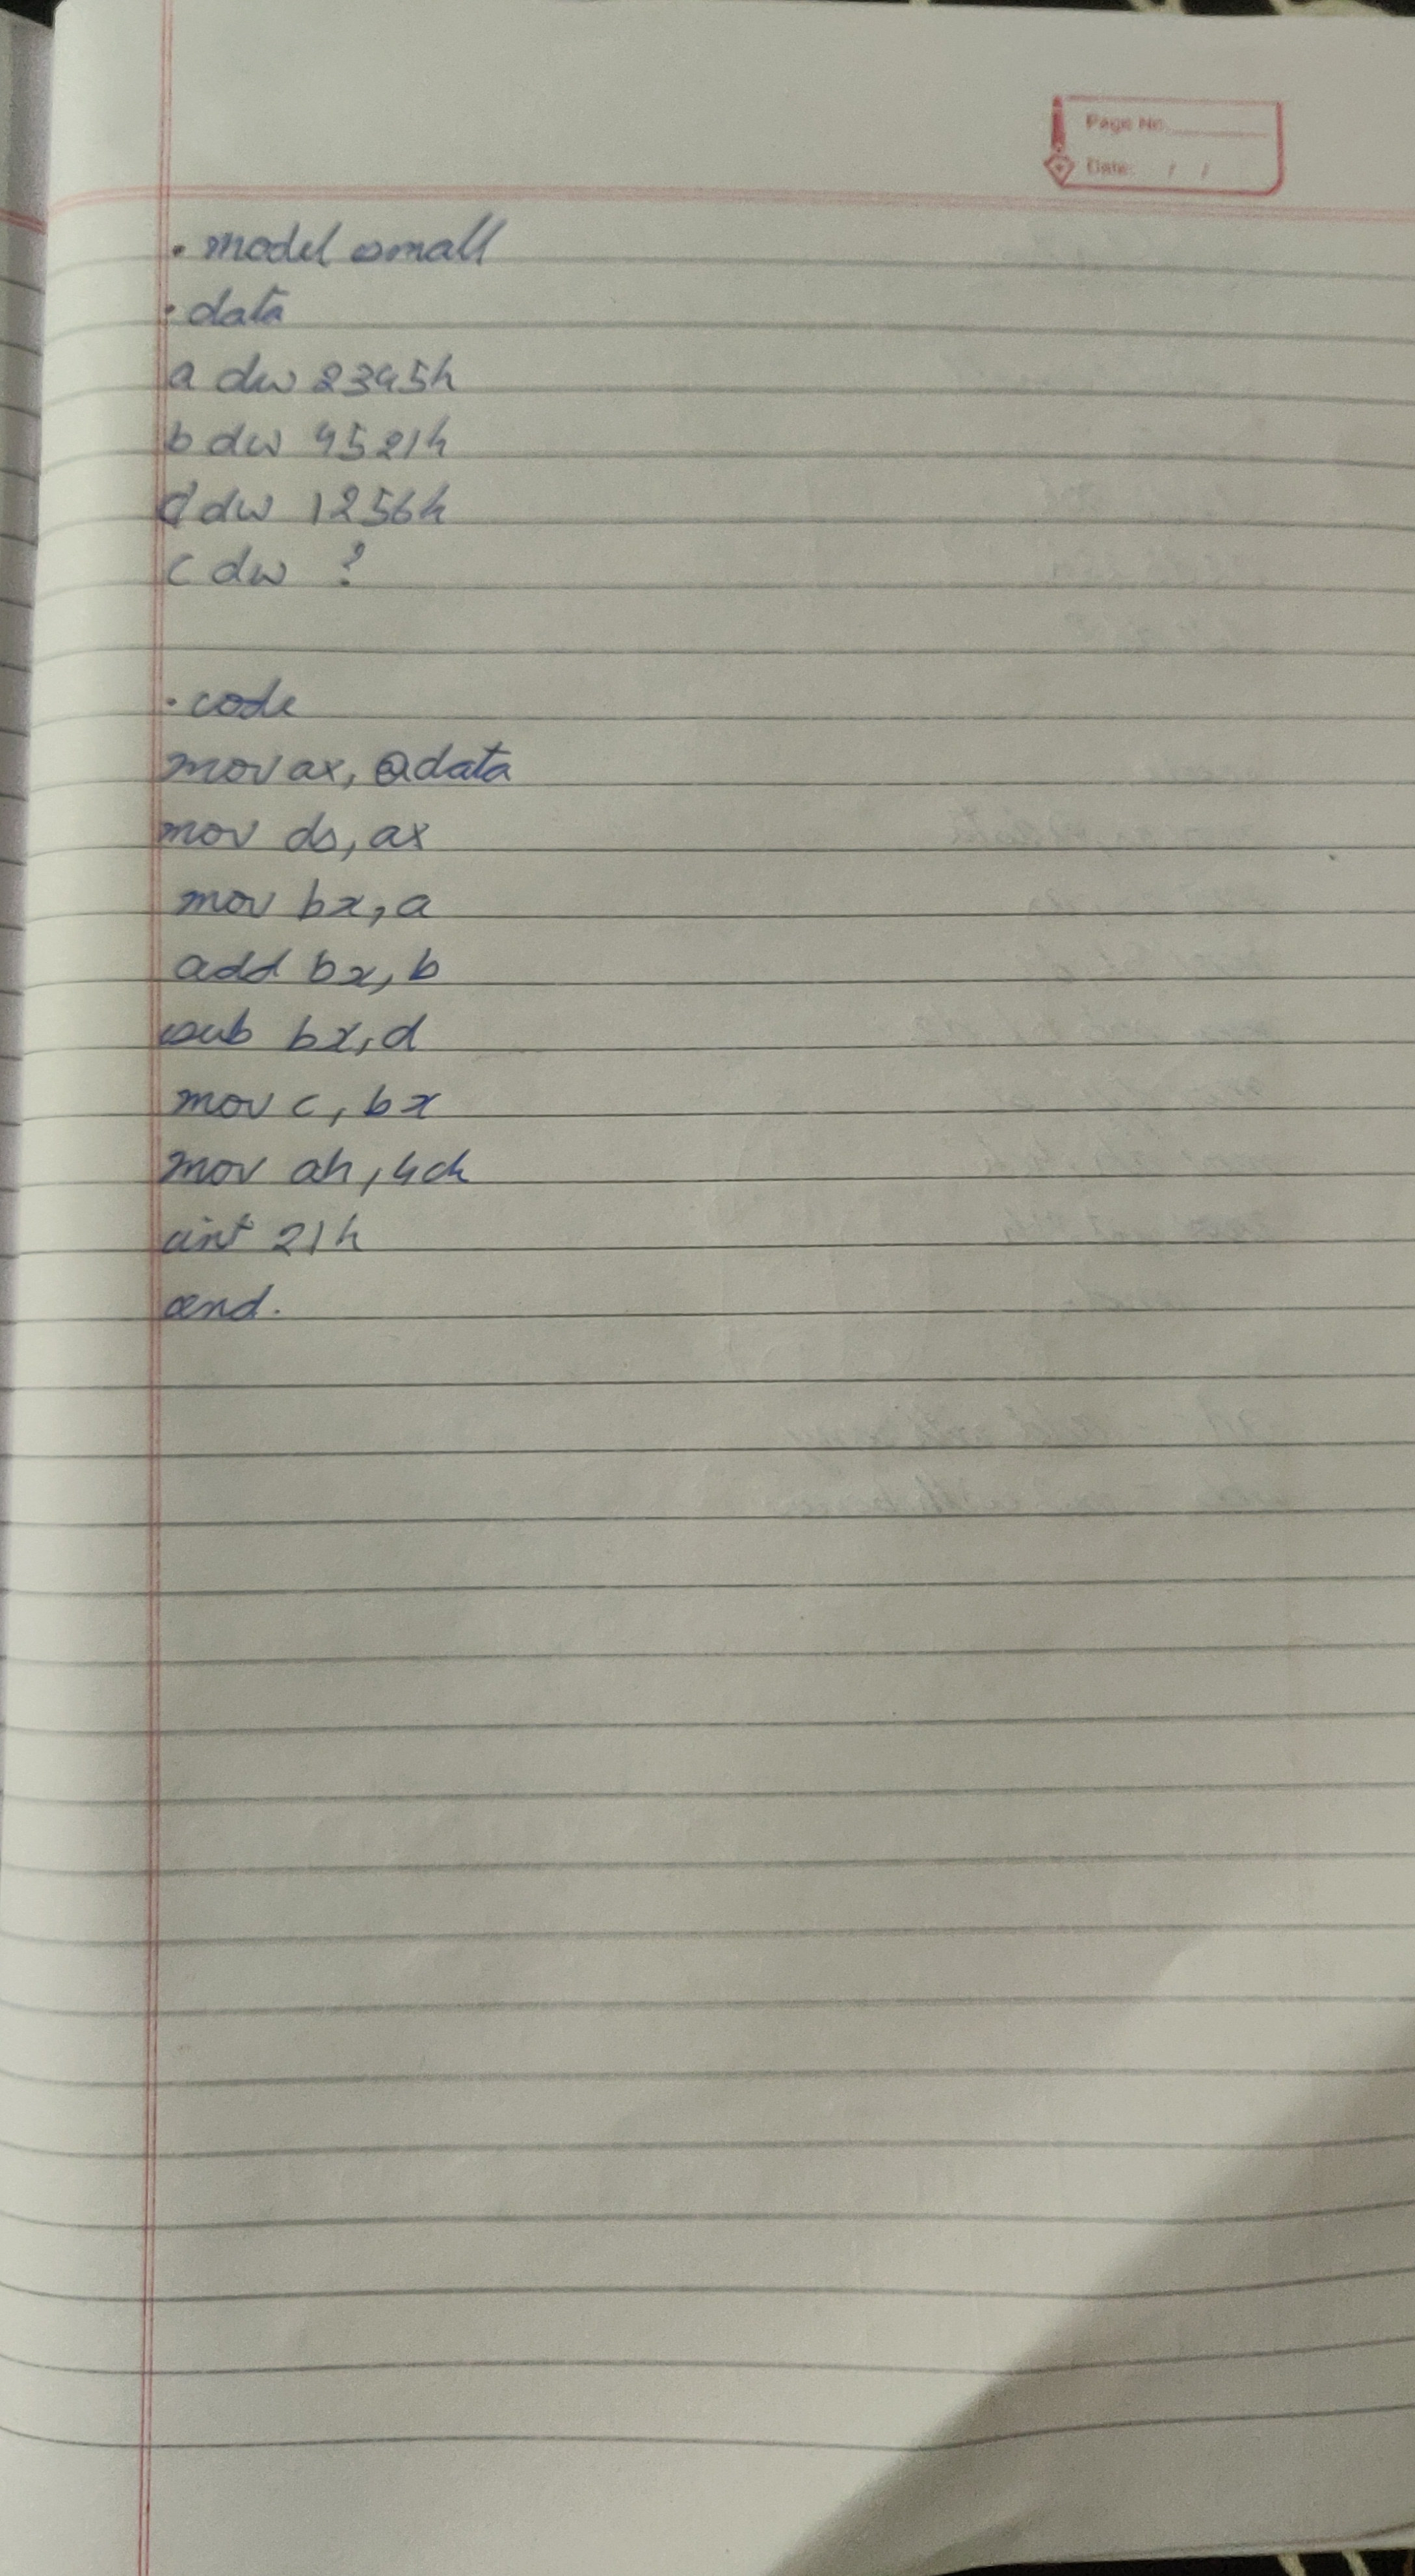 Page No.
Date: / /
.model small
.data
a dw 2345h
b dw 4521h
d dw 1256h
c dw ?
.code
mov ax, @data
mov ds, ax
mov bx, a
add bx, b
sub bx, d
mov c, bx
mov ah, 4ch
int 21h
end.